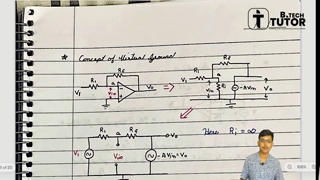 B.TECH
TUTOR
* Concept of Virtual Ground
Rf
R1
a
V1
Vin
Vo
⇒
Rf
V1
R1
a
Vin
Ri
-AVin
Vo
R1
a
Rf
Vo
V1
Vin
-AVin=Vo
Here Ri = ∞